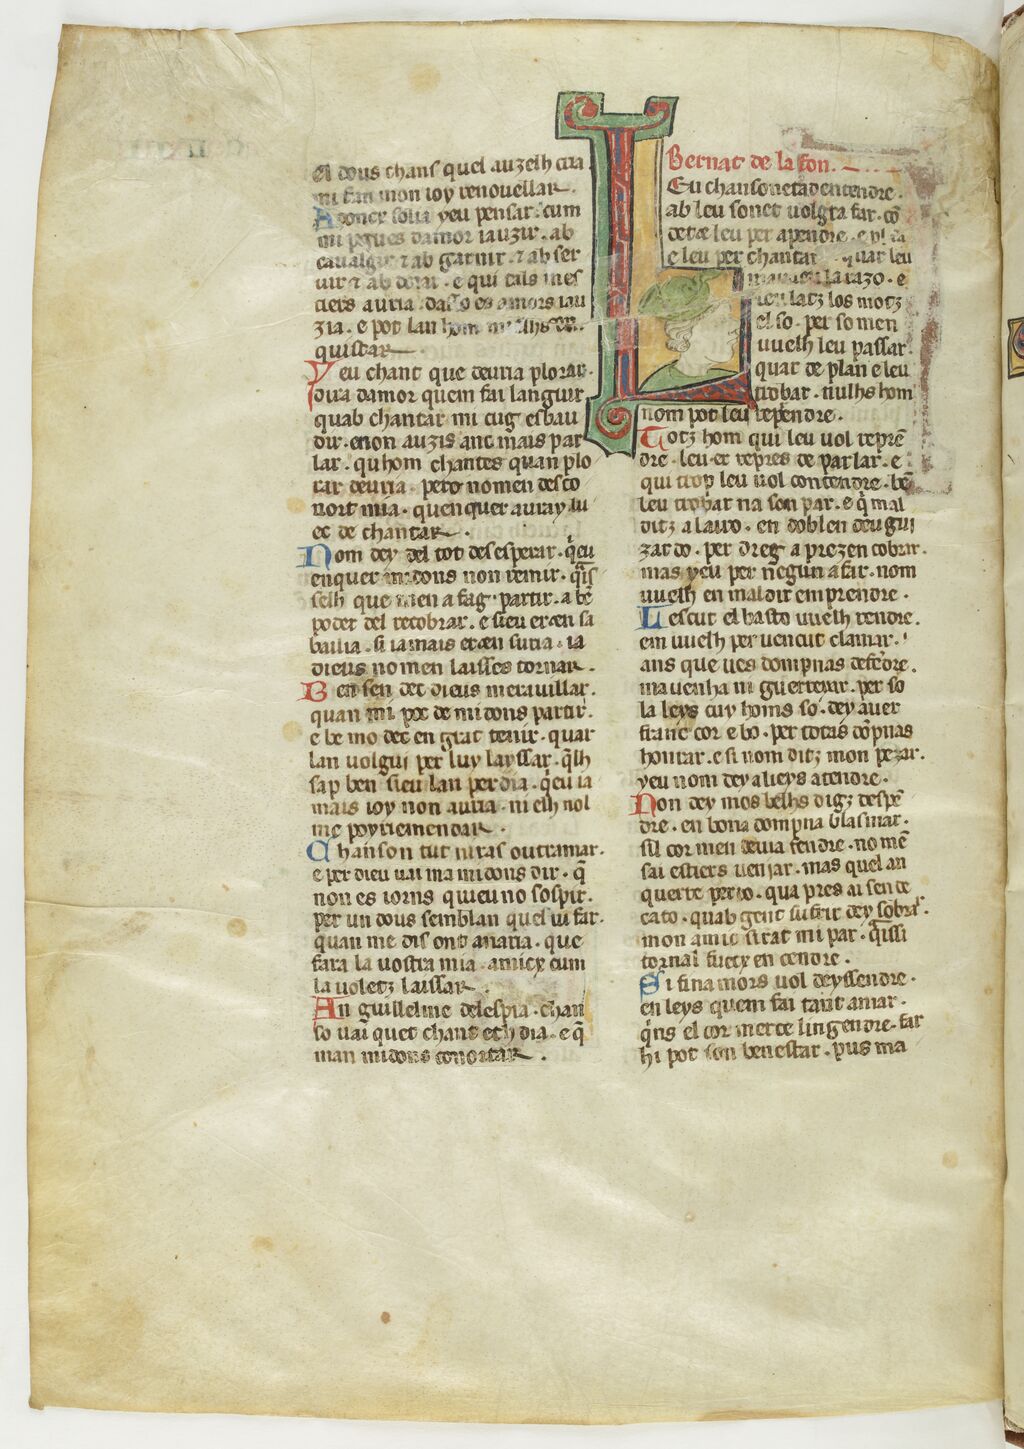 el dous chans quel auzelh cria
mi fan mon ioy renouellar.
Adoncx solia yeu pensar. cum
mi pogues damor iauzir. ab
caualgar ⁊ ab garnir. ⁊ ab ser
uir ⁊ ab donar. e qui tals mes
tiers auria. da es amors iau
zia. e pot lan hom mielhs con
quistar
Yeu chant que deuria plorar.
dira damor quem fai languir
quab chantar mi cug esbau
dir. enon auzis anc mais par
lar. quhom chantes quan plo
rar deuria. pero nomen desco
nort mia. quenquer auray lu
ec de chantar.
Nom dey del tot desesperar. q̃eu
enquer midons non remir. q̃lh
selh que men a fag partir. a bẽ
poder del recobrar. e sieu eraen sa
bailia. si iamais eraen suria. ia
dieus nomen laisses tornar.
Ben sen dec dieus merauillar.
quan mi poc de midons partir.
e be mo dec en grat tenir. quar
lan volgui per luy layssar. q̃lh
sap ben sieu lan perdia. q̃eu ia
mais ioy non auria. ni elh nol
me poyriemendar.
Chanson tut niras outramar.
e per dieu uai ma midons dir. q̃
non es iorns quieu no sospir.
per un dous semblan quel ui far.
quan me dis ont anaria. que
fara la uostra mia. amicx cum
la uoletz laissar.
An guillelme delespia. chan
so uai quet chant eth dia. e q̃
man midons conortar.
Bernat de la fon.
Leu chansonetadentendre.
ab leu sonet uolgra far. co
derae leu per apendre. e pla
e leu per chantar quar leu
la razo. e
leu latz los motz
el so. per so men
uuelh leu passar.
quar de plan e leu
trobar. nulhs hom
nom pot leu rependre.
Totz hom qui leu uol reprẽ
dre. leu er repres de parlar. e
qui trop leu uol contendre. bẽ
leu trobar na son par. e q̃ mal
ditz a lairo. en doblen deu gui
zardo. per dreg a prezen cobrar.
mas yeu per nẽgun afar. nom
uuelh en maldir emprendre.
Lescut el basto uuelh rendre.
em uuelh per uencut clamar.
ans que ues dompnas defẽdre.
mauenha ni guerreyar. per so
la leys cuy homs so. dey auer
franc cor e bo. per totas dõpnas
honrar. e si nom ditz mon pezar.
yeu nom dey alieys atendre.
Non dey mos belhs digz despẽ
dre. en bona dompna blasmar.
sil cor men deuia fendre. no mẽ
sai estiers uenjar. mas quel an
querre perdo. qua pres ai sen de
cato. quab gent sufrir dey sobrar.
mon amic si rat mi par. q̃issi
tornal fuecx en cendre.
Si finamors uol deyssendre.
en leys quem fai tant amar.
q̃ns el cor merce lingendre. far
hi pot son benestar. pus ma